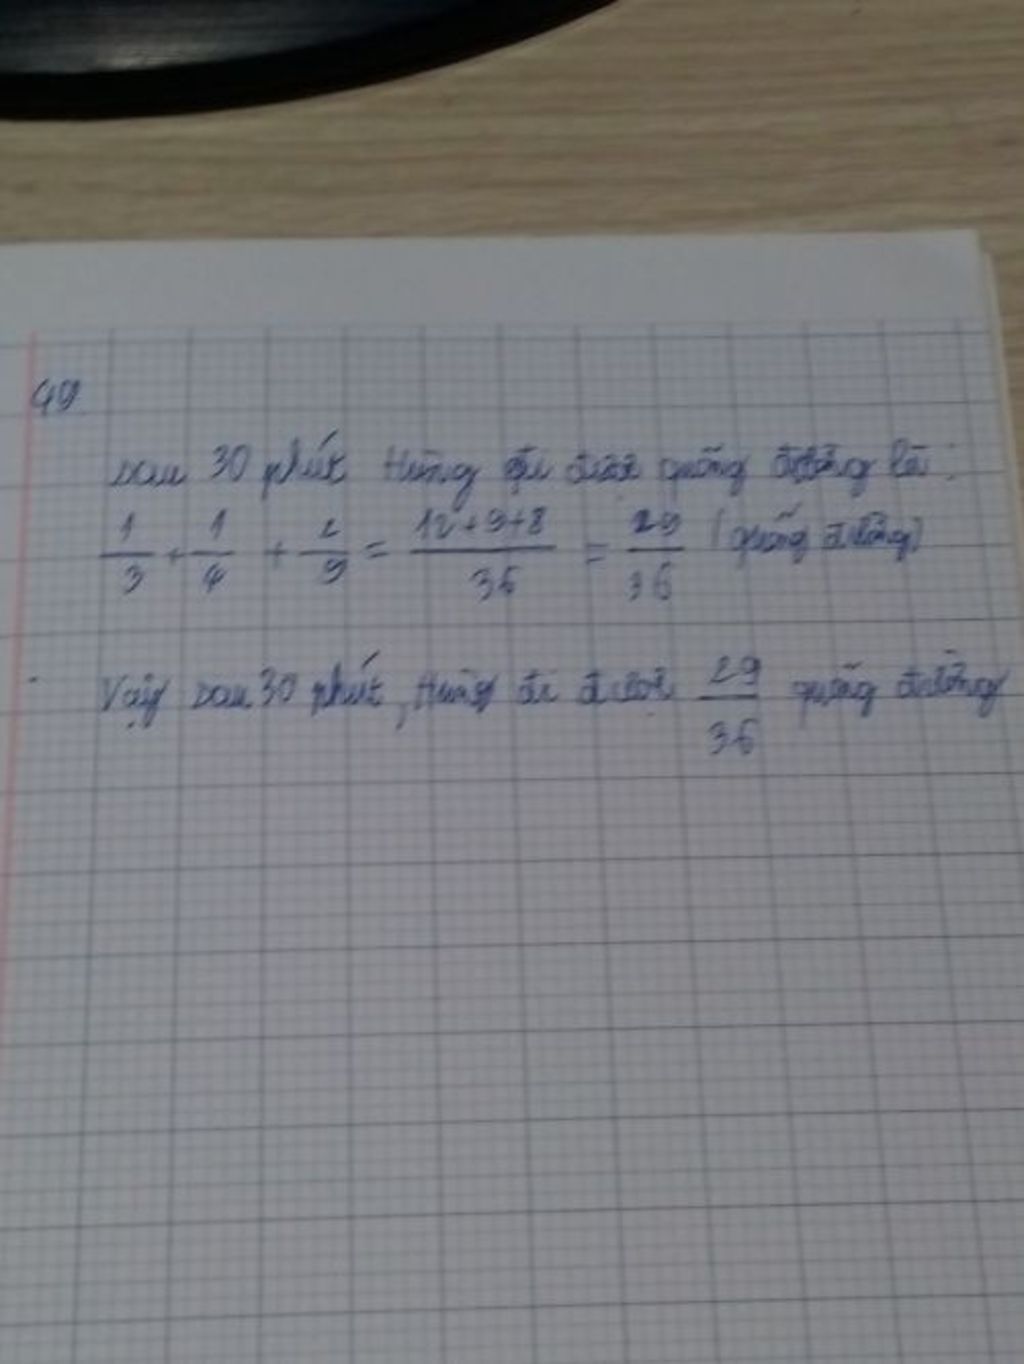 49
sau 30 phút Hùng đi được quãng đường là:
1/3 + 1/4 + 2/9 = 12+9+8/36 = 29/36 (quãng đường)
Vậy sau 30 phút, Hùng đi được 29/36 quãng đường